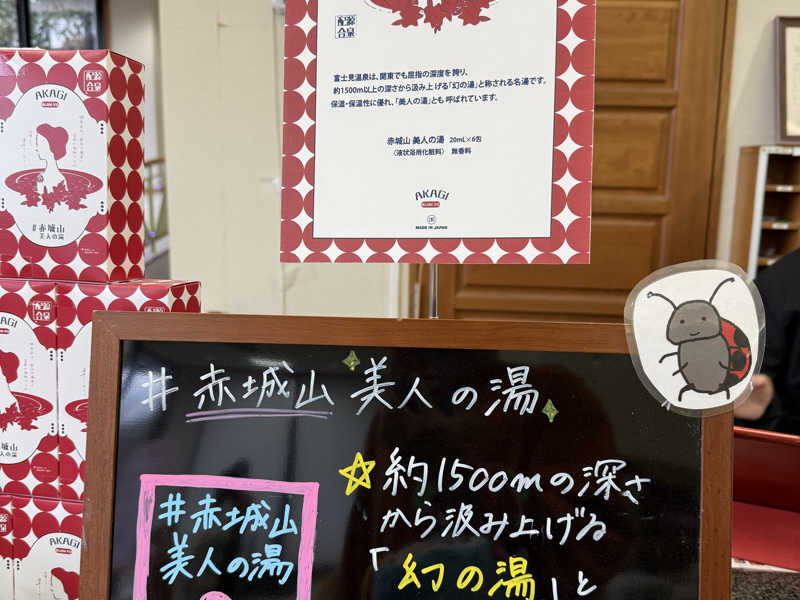 源泉
配合
富士見温泉は、関東でも屈指の深度を誇り、
約1500m以上の深さから汲み上げる「幻の湯」と称される名湯です。
保温・保湿性に優れ、「美人の湯」とも呼ばれています。
赤城山 美人の湯 20mL×6包
〈液状浴用化粧料〉 無香料
AKAGI
MADE IN JAPAN
源泉
配合
AKAGI
#赤城山
美人の湯
AKAGI
#赤城山 美人の湯
☆約1500mの深さ
から汲み上げる
「幻の湯」と
#赤城山
美人の湯